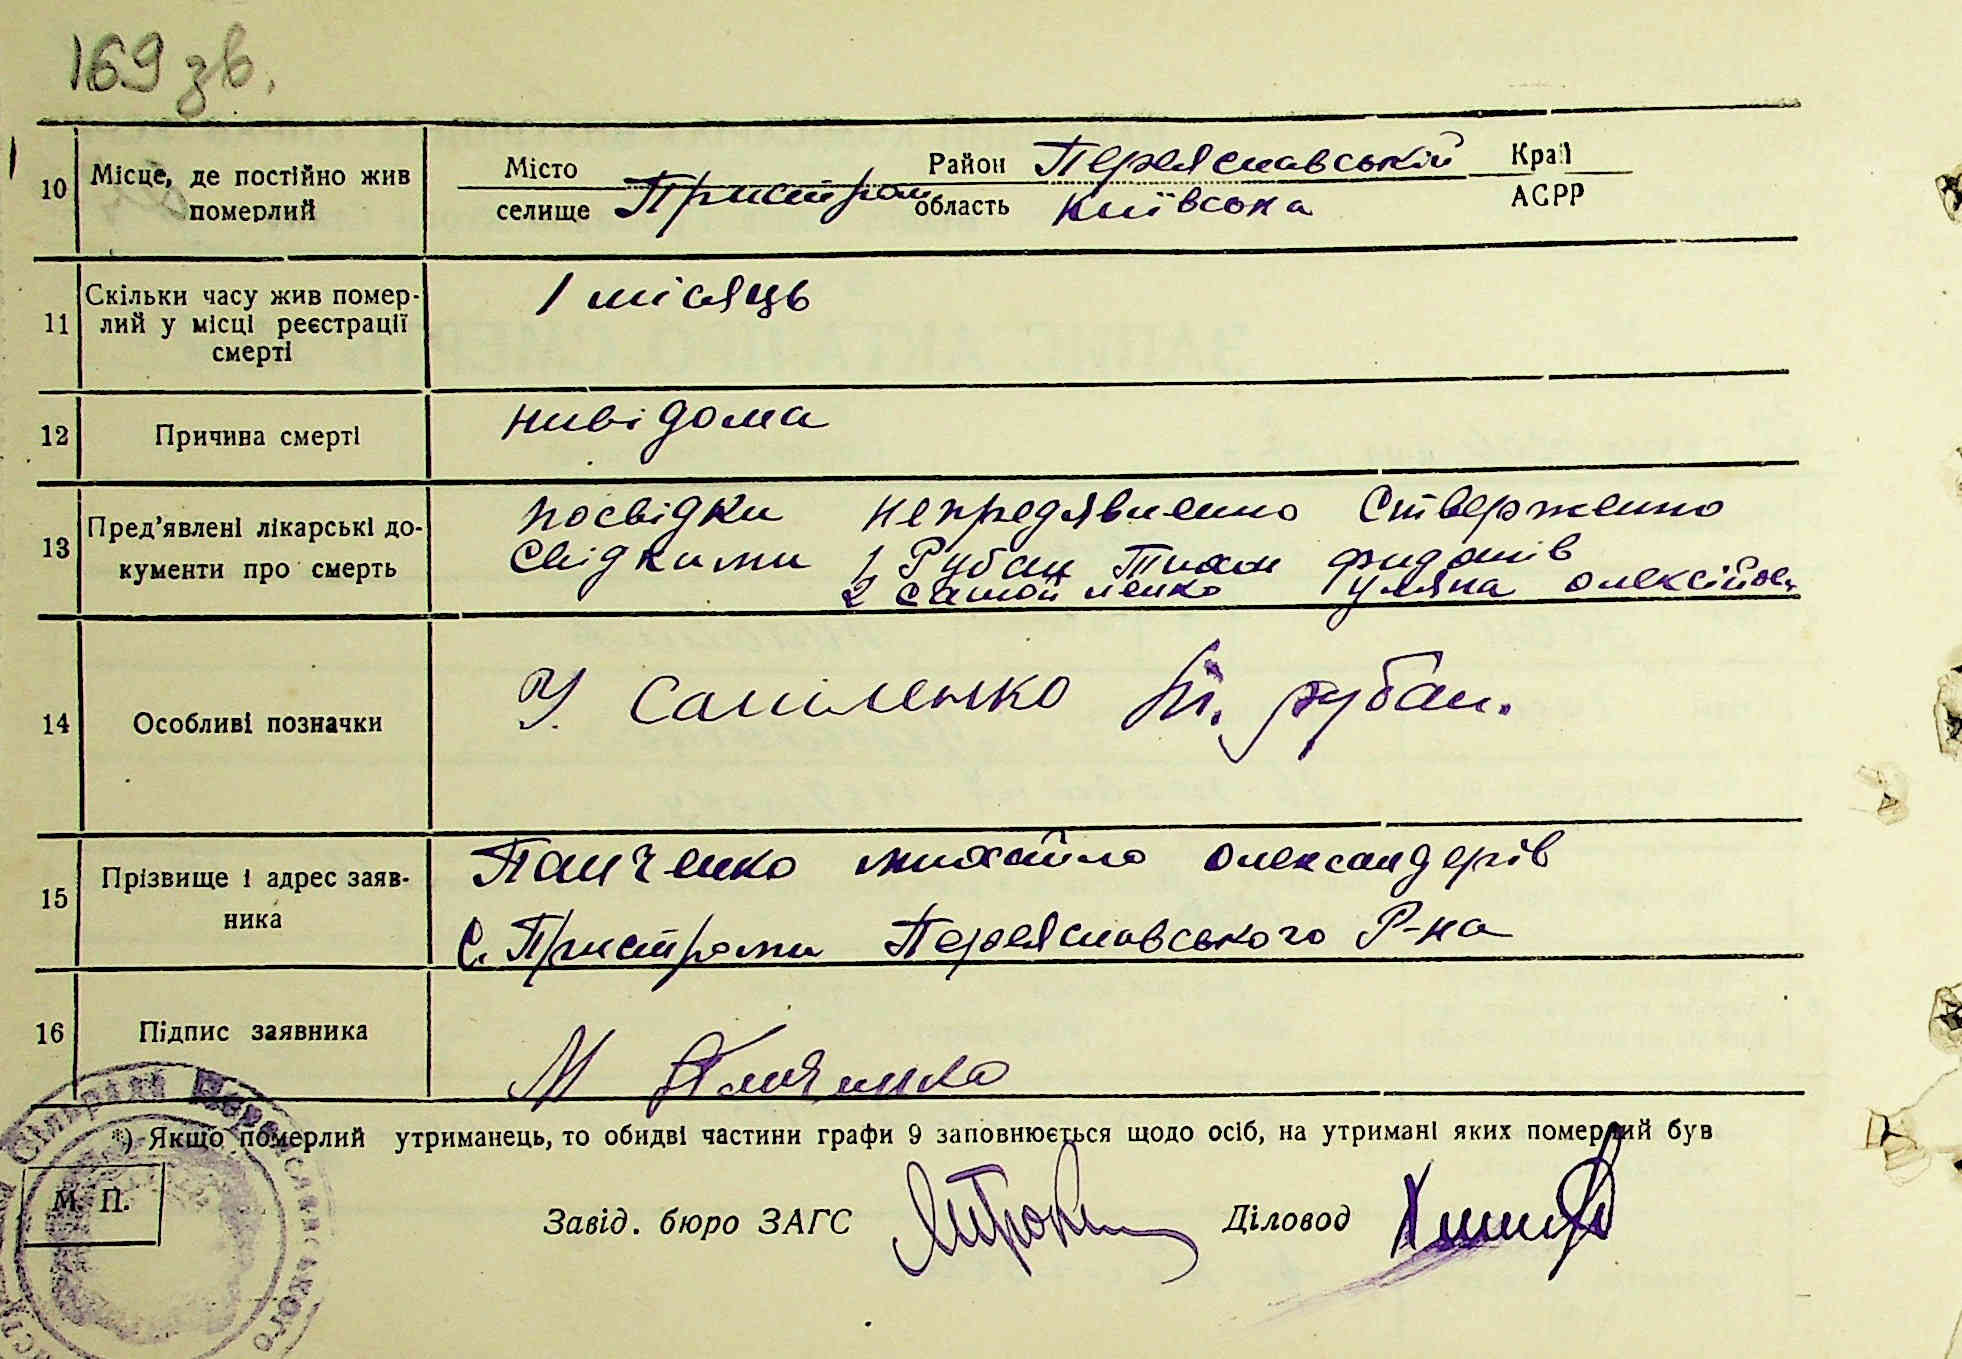 169 зв.
10 Місце, де постійно жив померлий
Місто Район Переяславській Край
селище Пристром область Київська АСРР
11 Скільки часу жив помер-
лий у місці реєстрації
смерті
1 місяць
12 Причина смерті
нивідома
13 Пред’явлені лікарські до-
кументи про смерть
посвідки непредявленно Ствержено
Свідками 1 Рубан
2 Самойленко Уляна олексійов
14 Особливі позначки
У Самиленко рубан.
15 Прізвище і адрес заяв-
ника
Панченко михайло олександерів
С. Пристроми Переяславського Р-на
16 Підпис заявника
М
Сільрада Переяславського
*) Якщо померлий утриманець, то обидві частини графи 9 заповнюється щодо осіб, на утримані яких померлий був
М. П.
Завід. бюро ЗАГС Діловод